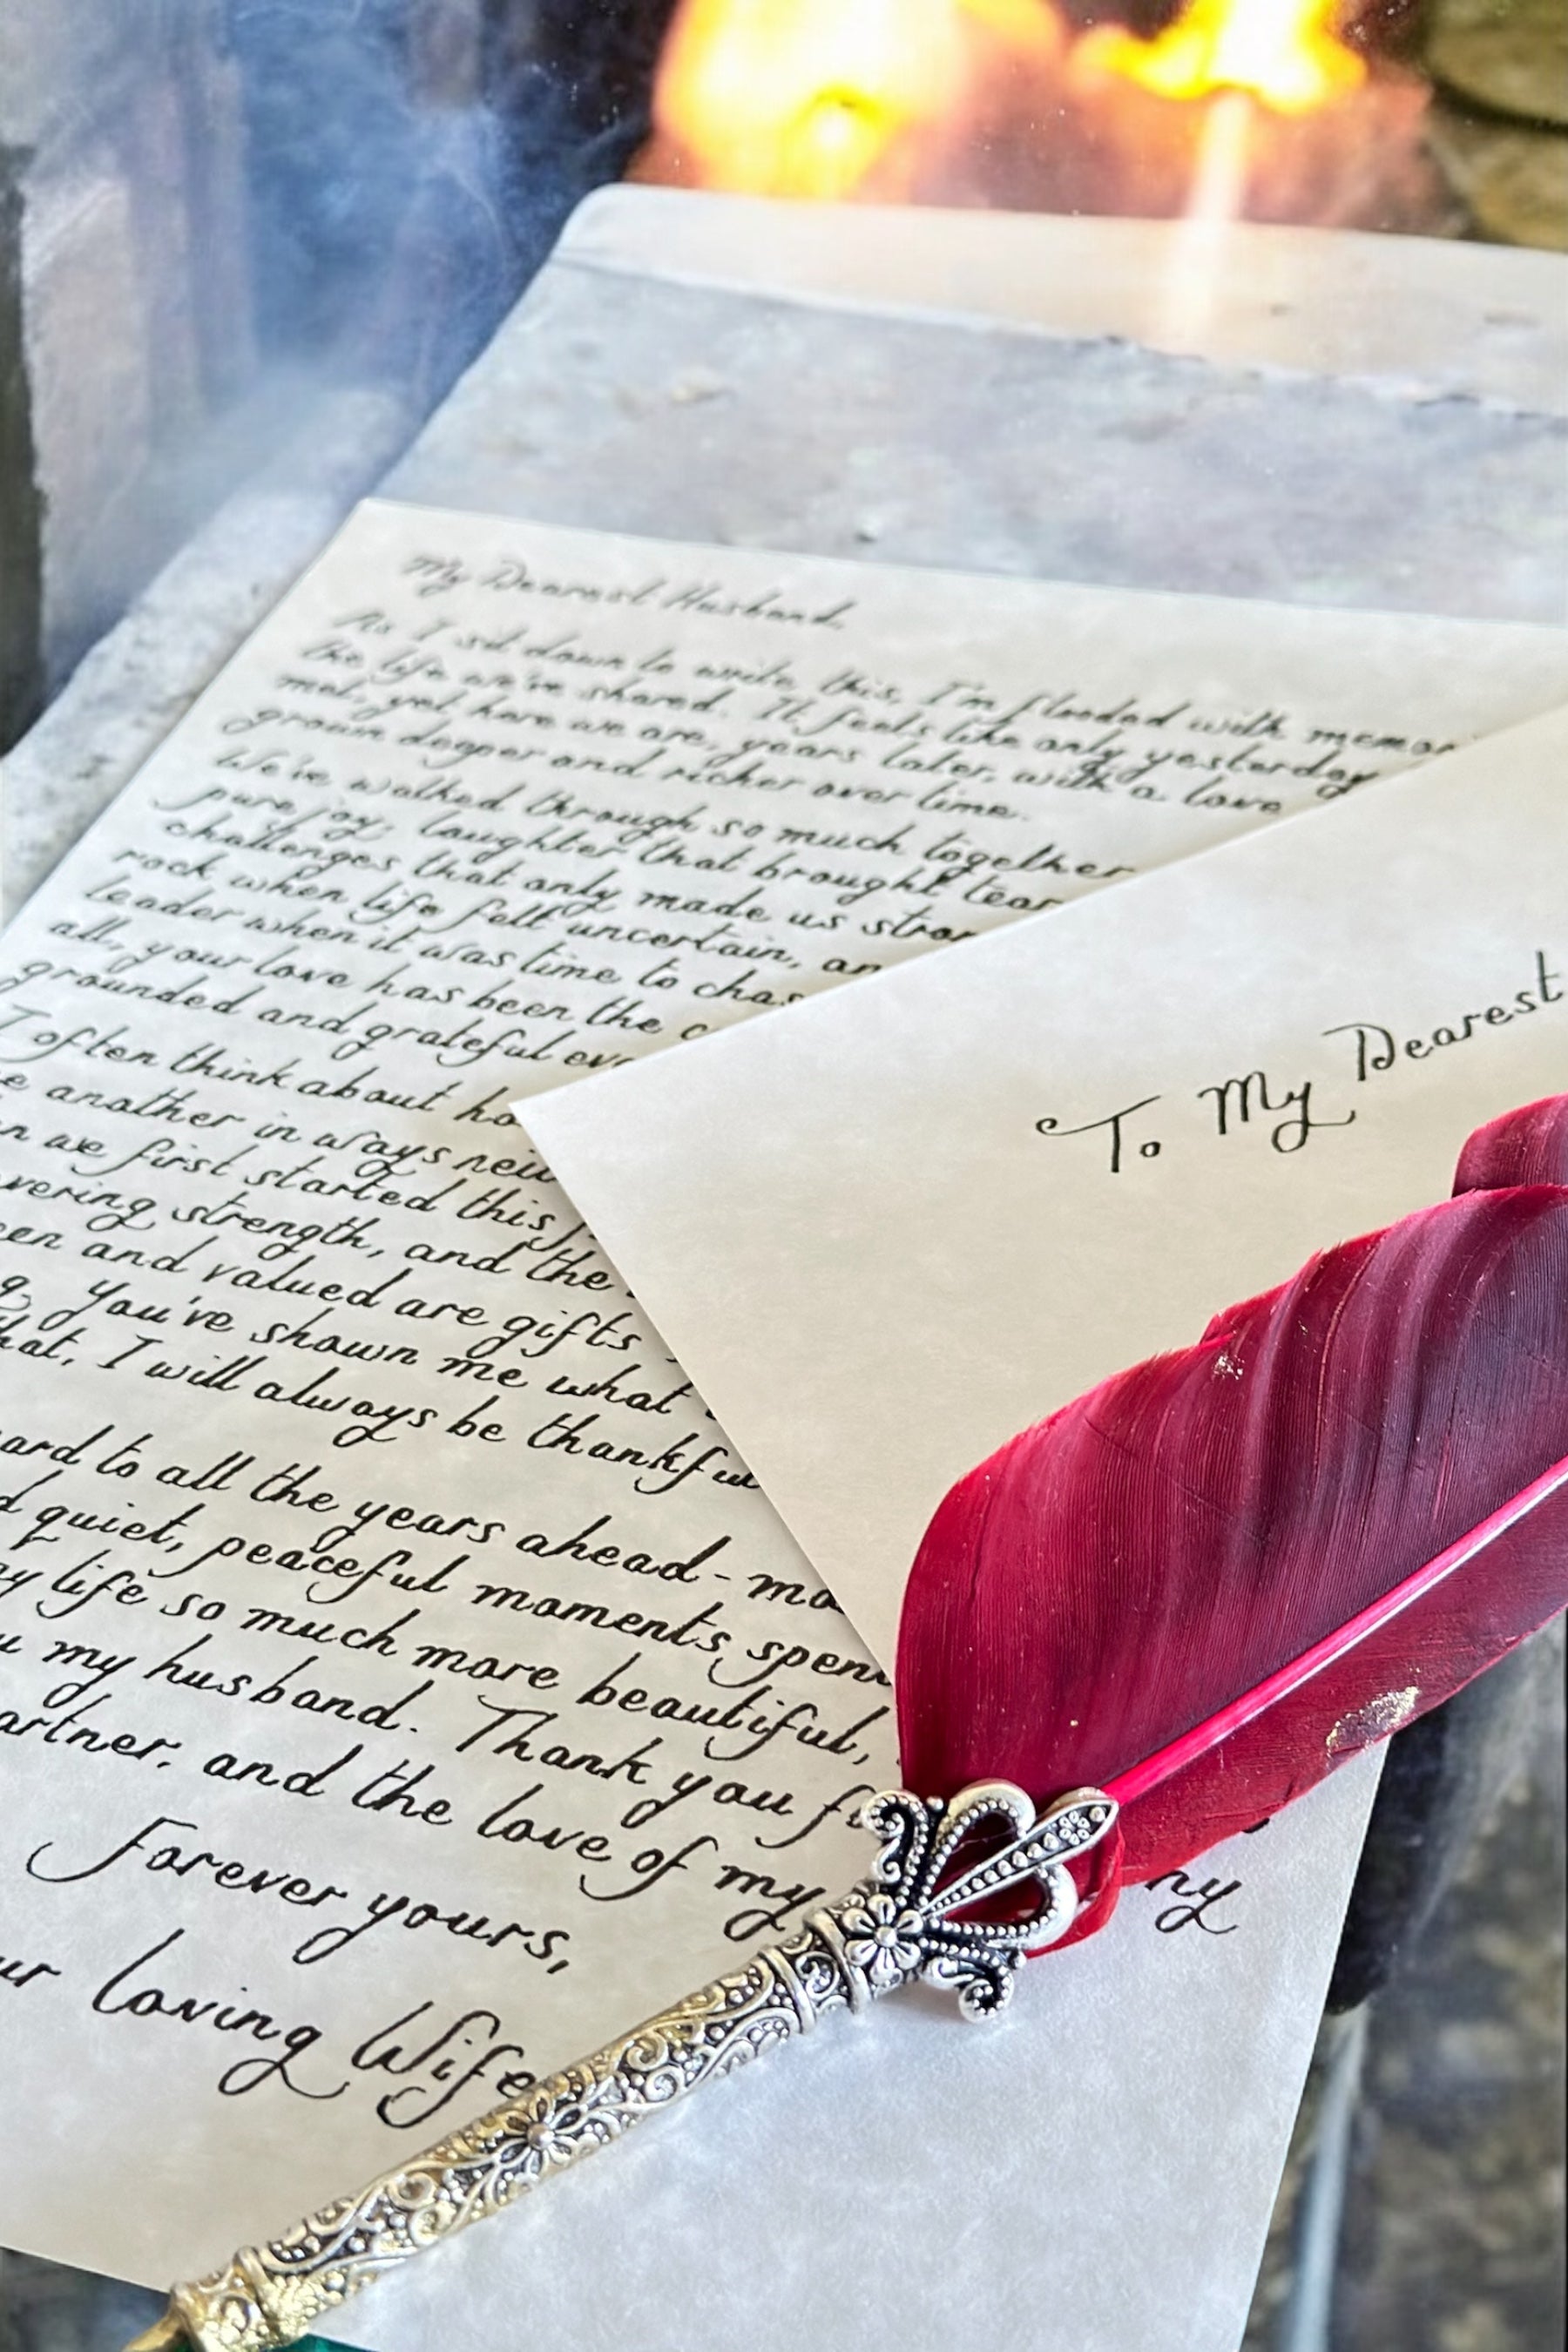 My Dearest Husband,
As I sit down to write this, I'm flooded with
the life we've shared. It feels like only yesterday
met, yet here we are, years later, with a love
grown deeper and richer over time.
We've walked through so much together
pure joy, laughter that brought
challenges that only made us
rock when life felt uncertain,
leader when it was time to
all, your love has been the
grounded and grateful
I often think about
another in ways
we first started this
strength, and the
and valued are gifts
You've shown me what
I will always be
to all the years ahead-
quiet, peaceful moments
life so much more beautiful,
my husband. Thank you
and the love of my
Forever yours,
loving Wife
To My Dearest